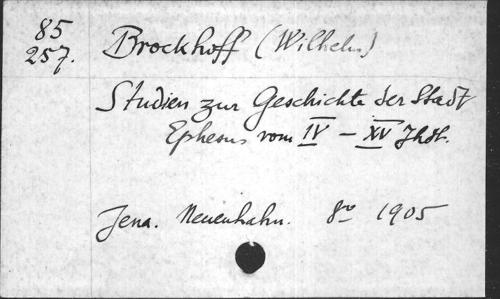 85
257.
Brockhoff (Wilhelm)
Studien zur Geschichte der Stadt
Ephesus vom IV – XV Jhdt.
Jena. Neuenhahn. 8vo 1905